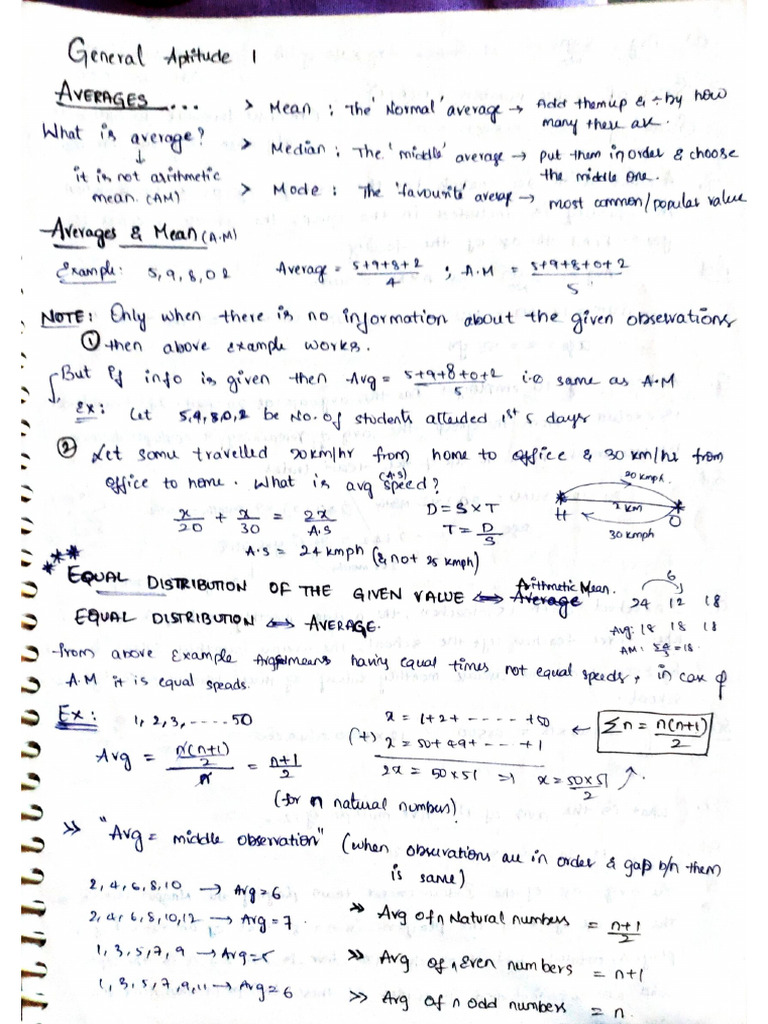 General Aptitude 1
AVERAGES ...
> Mean : The 'Normal' average → Add them up & ÷ by how many there are.
What is average?
↓
it is not arithmetic mean. (AM)
> Median : The 'middle' average → put them in order & choose the middle one.
> Mode : The 'favourite' average → most common/popular value
Averages & Mean (A.M)
Example: 5, 9, 8, 0 2 Average = (5+9+8+2)/4 ; A.M = (5+9+8+0+2)/5
NOTE: Only when there is no information about the given observations
① then above example works.
But if info is given then Avg = (5+9+8+0+2)/5 i.e same as A.M
Ex: Let 5,9,8,0,2 be No. of students attended 1st 5 days
② Let some travelled 20km/hr from home to office & 30 km/hr from
office to home. What is avg speed? (A.S)
20 kmph.
H x km O
30 kmph
x/20 + x/30 = 2x/A.S
D = S × T
T = D/S
A.S = 24 kmph (& not 25 kmph)
*** EQUAL DISTRIBUTION OF THE GIVEN VALUE ⟺ Average Arithmetic Mean.
EQUAL DISTRIBUTION ⟺ AVERAGE.
6
24 12 18
Avg: 18 18 18
AM: 54/3 = 18
from above example means having equal times, not equal speeds, in case of
A.M it is equal speads.
Ex: 1, 2, 3, .... 50
x = 1+2+ ..... +50
(+) x = 50+49+ ... +1
2x = 50×51 ⇒ x = 50×51/2
← Σn = n(n+1)/2
Avg = (n(n+1)/2)/n = (n+1)/2
(for n natural numbers)
>> "Avg = middle observation" (when observations are in order & gap b/n them is same)
2, 4, 6, 8, 10 → Avg = 6
2, 4, 6, 8, 10, 12 → Avg = 7.
1, 3, 5, 7, 9 → Avg = 5
1, 3, 5, 7, 9, 11 → Avg = 6
>> Avg of n Natural numbers = (n+1)/2
>> Avg. of n Even numbers = n+1
>> Avg of n odd numbers = n.